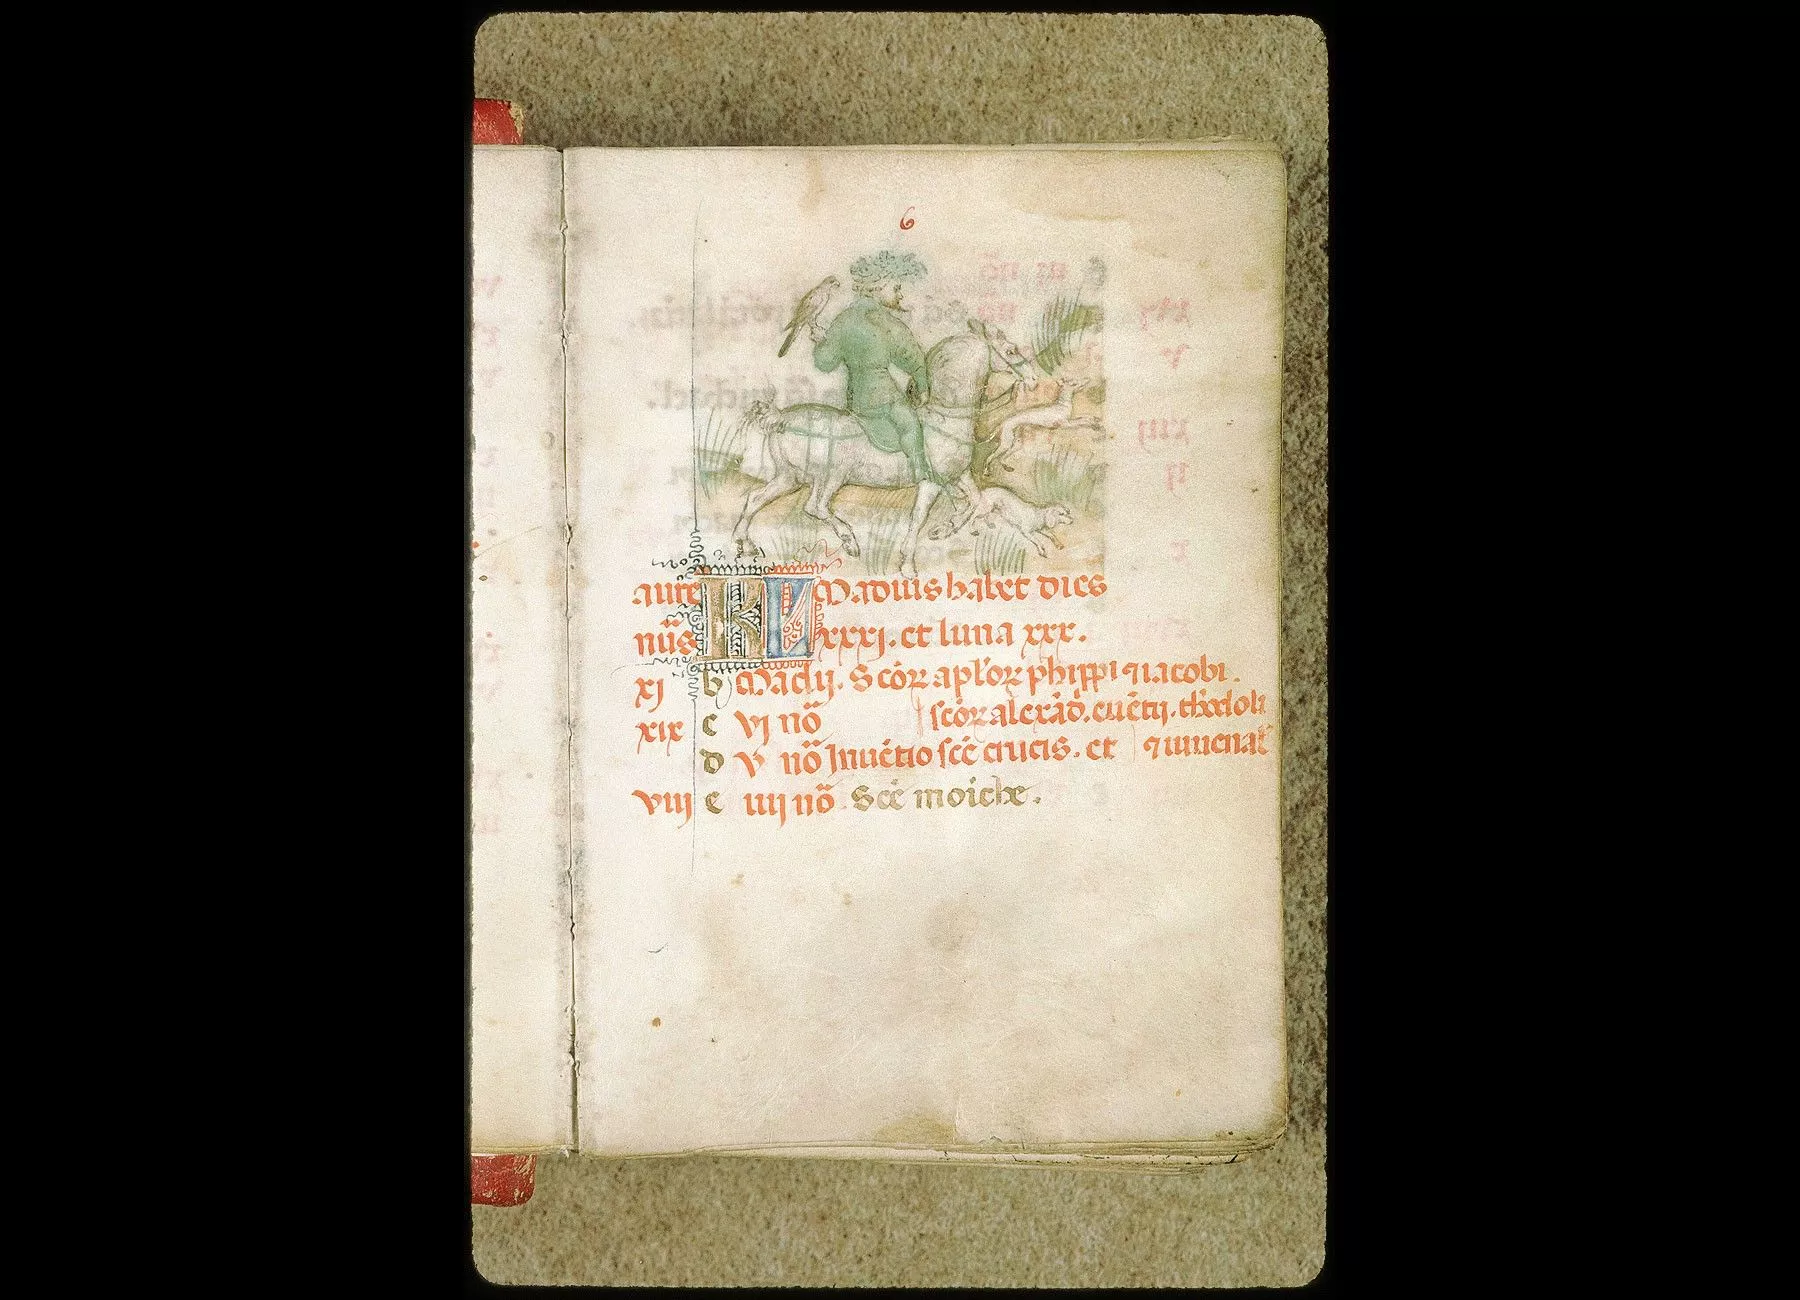 6
aure KL Madius habet dies
nũs xxxi. et luna xxx.
xj b Madij. Scõꝝ aplõꝝ phippi ⁊ iacobi.
xix c vj nõ scõꝝ alexãd. euẽtij. theodoli
d v nõ Inuẽtio scẽ crucis. et ⁊ iuuenal
viij e iiij nõ Scẽ moiche.